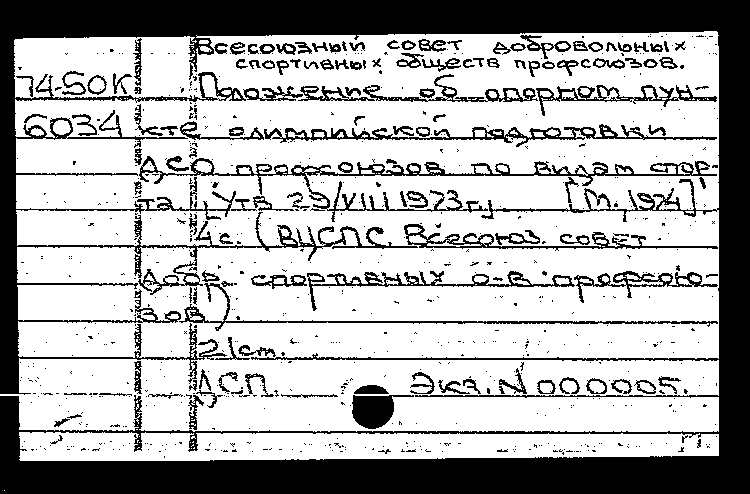 Всесоюзный совет добровольных
спортивных обществ профсоюзов.
74-50К Положение об опорном пун-
6034 кте олимпийской подготовки
ДСО профсоюзов по видам спор-
та. [Утв. 29/VIII 1973г.]. [М., 1974].
4с. (ВЦСПС. Всесоюз. совет
добр. спортивных о-в профсою-
зов).
21см.
ДСП. Экз. N 000005.